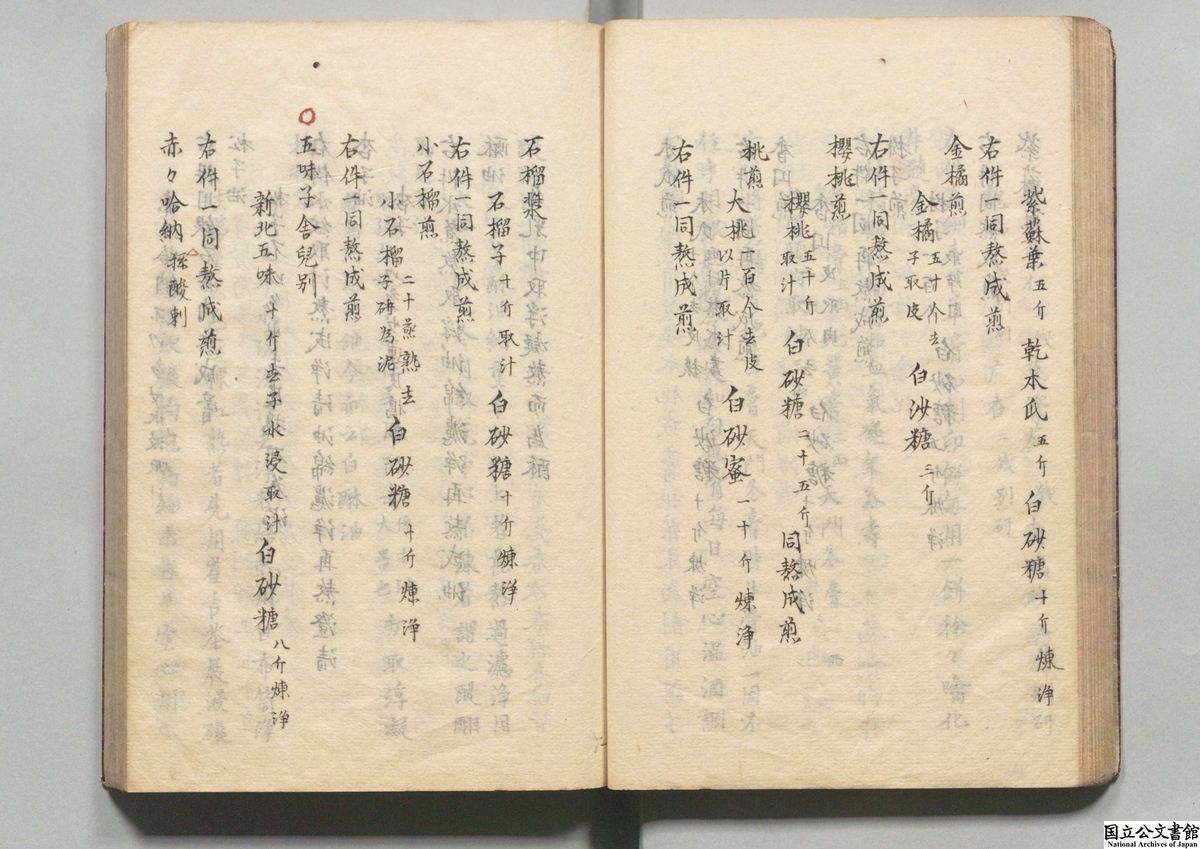 紫蘇葉五斤 乾木瓜五斤 白砂糖十斤煉浄
右件一同熬成煎
金橘煎
金橘五十个去子取皮 白沙糖三斤煉浄
右件一同熬成煎
櫻桃煎
櫻桃五十斤取汁 白砂糖二十五斤 同熬成煎
桃煎
大桃一百个去皮以片取汁 白砂蜜一十斤煉浄
右件一同熬成煎
石榴漿
石榴子十斤取汁 白砂糖十斤煉浄
右件一同熬成煎
小石榴煎
小石榴二十蒸熟去子研為泥 白砂糖十斤煉浄
右件一同熬成煎
五味子舍兒別
新北五味十斤去子水浸取汁 白砂糖八斤煉浄
右件一同熬成煎
赤々哈納 採酸刺
国立公文書館
National Archives of Japan